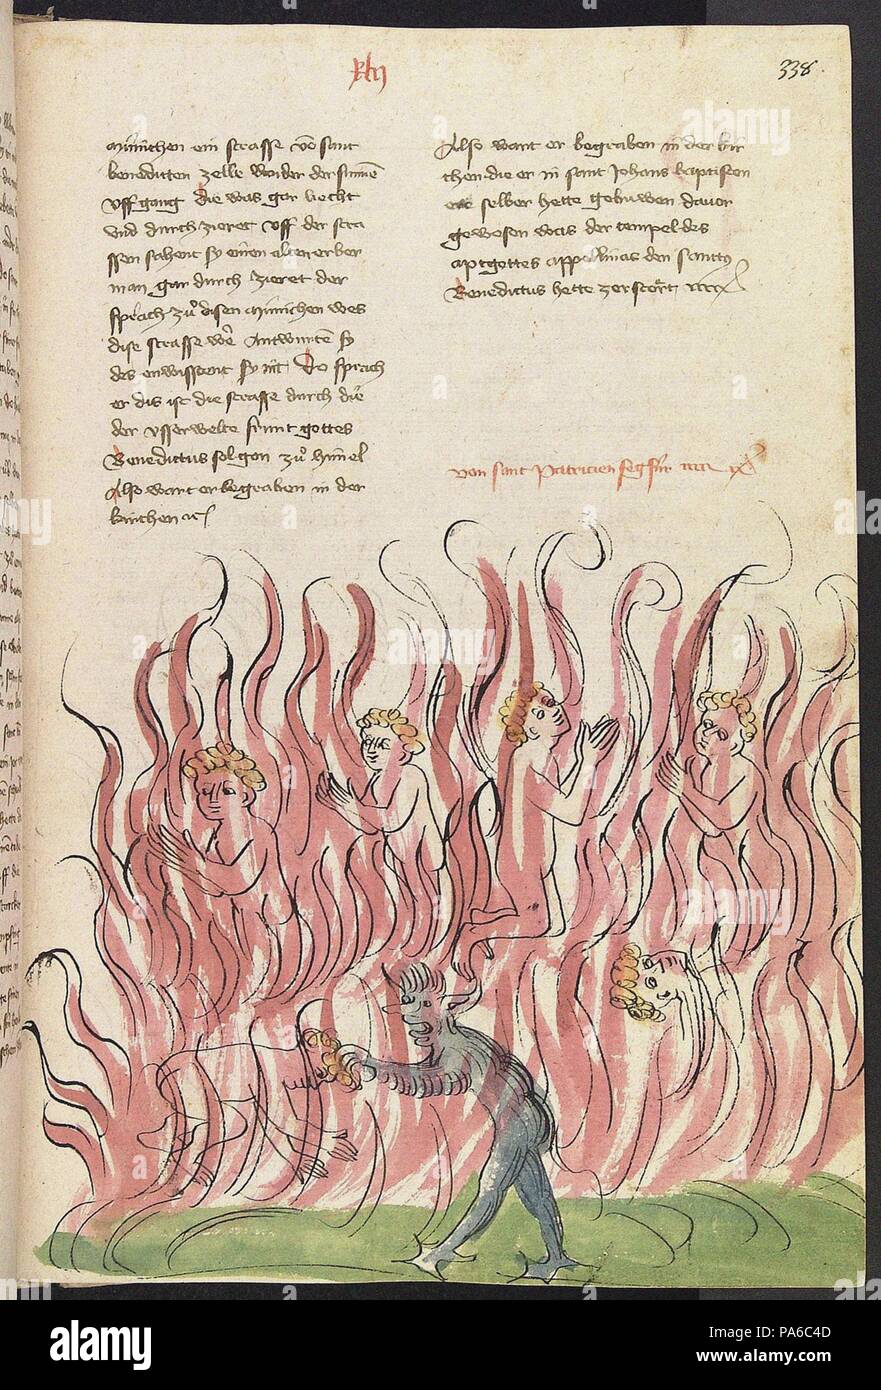 338
münichen ein strasse vō sant
benedicten zelle wider der sunnē
vff gang die was gar liecht
vnd durch zieret vff der stra
ssen sahent sy einen alten erber
man gar durch zieret der
sprach zů disen münichen wes
dise strasse wer Antwurtē sy
des enwissent sy nit Do sprach
er dis ist die strasse durch die
der vsserwelte frünt gottes
Benedictus sol gon zů himel
Also wart er begraben in der
kirchen
Also wart er begraben in der kir
chen die er in sant Johans baptisten
ere selber hette gebuwen davor
gewesen was der tempel des
aptgottes appollinas den sanctus
Benedictus hette zerstört
von sant Patricien fegfür
alamy
alamy
Image ID: PA6C4D
www.alamy.com